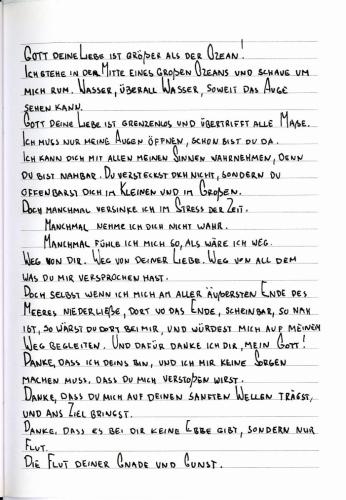 GOTT DEINE LIEBE IST GRÖßER ALS DER OZEAN!
ICH STEHE IN DER MITTE EINES GROßEN OZEANS UND SCHAUE UM
MICH RUM. WASSER, ÜBERALL WASSER, SOWEIT DAS AUGE
SEHEN KANN.
GOTT DEINE LIEBE IST GRENZENLOS UND ÜBERTRIFFT ALLE MAßE.
ICH MUSS NUR MEINE AUGEN ÖFFNEN, SCHON BIST DU DA.
ICH KANN DICH MIT ALLEN MEINEN SINNEN WAHRNEHMEN, DENN
DU BIST NAHBAR. DU VERSTECKST DICH NICHT, SONDERN DU
OFFENBARST DICH IM KLEINEN UND IM GROßEN.
DOCH MANCHMAL VERSINKE ICH IM STRESS DER ZEIT.
MANCHMAL NEHME ICH DICH NICHT WAHR.
MANCHMAL FÜHLE ICH MICH SO, ALS WÄRE ICH WEG.
WEG VON DIR. WEG VON DEINER LIEBE. WEG VON ALL DEM
WAS DU MIR VERSPROCHEN HAST.
DOCH SELBST WENN ICH MICH AM ALLER ÄUßERSTEN ENDE DES
MEERES NIEDERLIEßE, DORT WO DAS ENDE, SCHEINBAR, SO NAH
IST, SO WÄRST DU DORT BEI MIR, UND WÜRDEST MICH AUF MEINEM
WEG BEGLEITEN. UND DAFÜR DANKE ICH DIR, MEIN GOTT!
DANKE, DASS ICH DEINS BIN, UND ICH MIR KEINE SORGEN
MACHEN MUSS, DASS DU MICH VERSTOßEN WIRST.
DANKE, DASS DU MICH AUF DEINEN SANFTEN WELLEN TRÄGST,
UND ANS ZIEL BRINGST.
DANKE, DASS ES BEI DIR KEINE EBBE GIBT, SONDERN NUR
FLUT.
DIE FLUT DEINER GNADE UND GUNST.